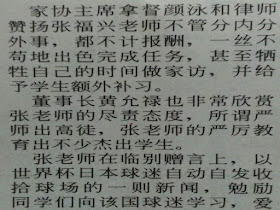 家协主席拿督颜泳和律师
赞扬张福兴老师不管分内分
外事，都不计报酬，一丝不
苟地出色完成任务，甚至牺
牲自己的时间做家访，并给
予学生额外补习。
董事长黄允禄也非常欣赏
张老师的尽责态度，所谓严
师出高徒，张老师的严厉教
育出不少杰出学生。
张老师在临别赠言上，以
世界杯日本球迷自动自发收
拾球场的一则新闻，勉励
同学们向该国球迷学习，爱